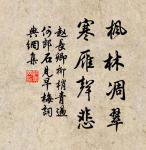 楓林凋翠
寒雁聲悲
趙長卿柳梢青過
何郎石見早梅詞
典網集